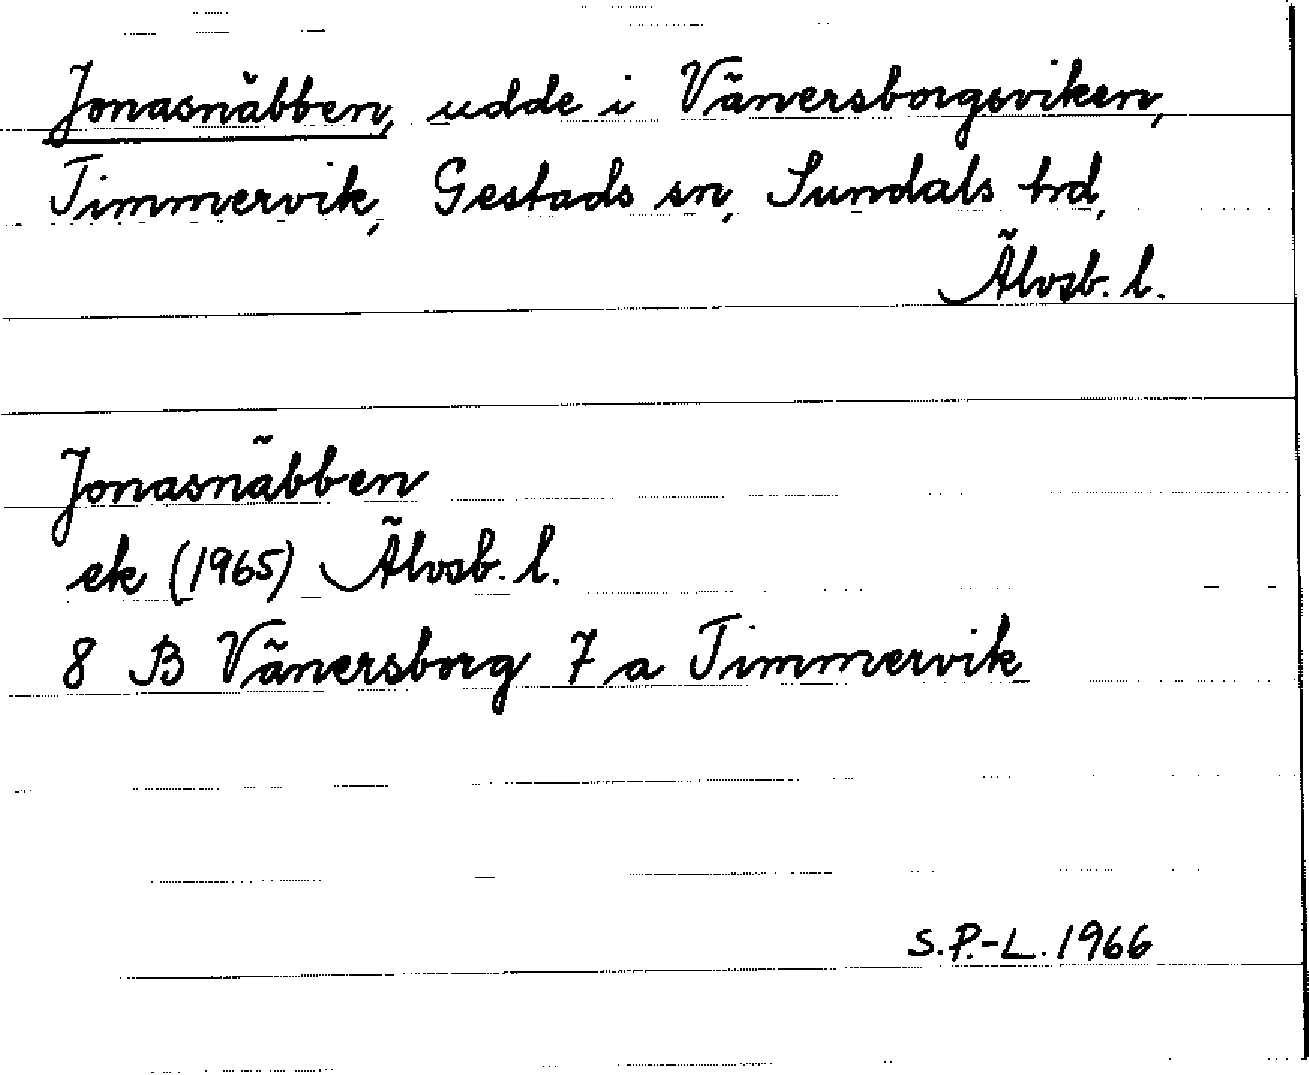 Jonasnäbben, udde i Vänersborgsviken,
Timmervik, Gestads sn, Sundals hd,
Älvsb. l.
Jonasnäbben
ek (1965) Älvsb. l.
8 B Vänersborg 7 a Timmervik
S.P.-L. 1966